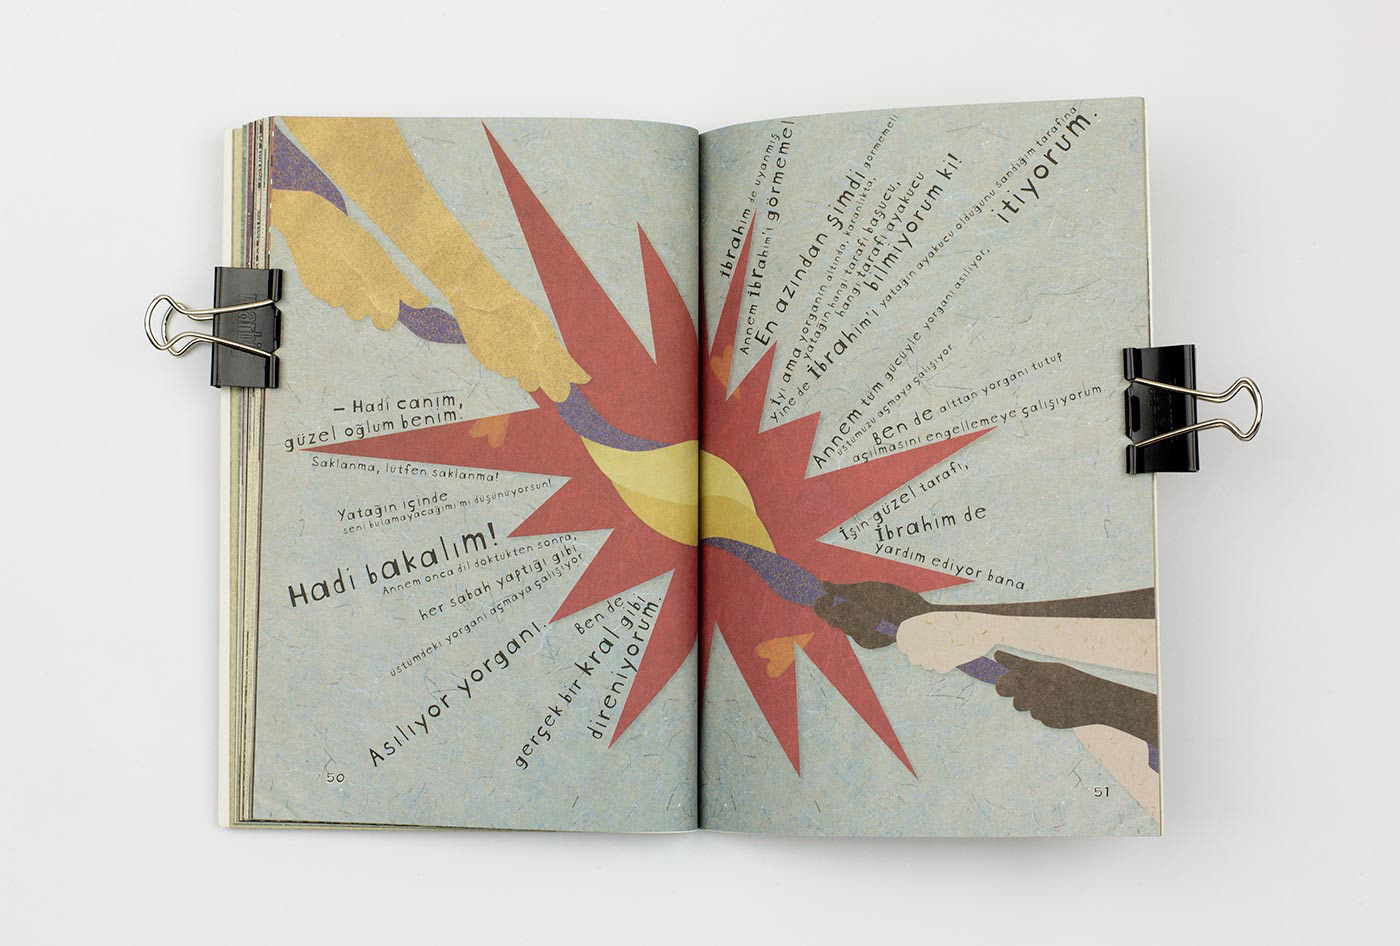 — Hadi canım,
güzel oğlum benim.
Saklanma, lütfen saklanma!
Yatağın içinde
seni bulamayacağımı mı düşünüyorsun!
Hadi bakalım!
Annem onca dil döktükten sonra,
her sabah yaptığı gibi
üstümdeki yorganı açmaya çalışıyor
Asılıyor yorganı.
Ben de
gerçek bir kral gibi
direniyorum.
50
İbrahim de uyanmış,
Annem İbrahim'i görmemeli
En azından şimdi görmemeli
İyi ama yorganın altında, karanlıkta,
yatağın hangi tarafı başucu,
hangi tarafı ayakucu
bilmiyorum ki!
Yine de İbrahim'i yatağın ayakucu olduğunu sandığım tarafına
itiyorum.
Annem tüm gücüyle yorganı asılıyor,
üstümüzü açmaya çalışıyor
Ben de alttan yorganı tutup
açılmasını engellemeye çalışıyorum
İşin güzel tarafı,
İbrahim de
yardım ediyor bana.
51